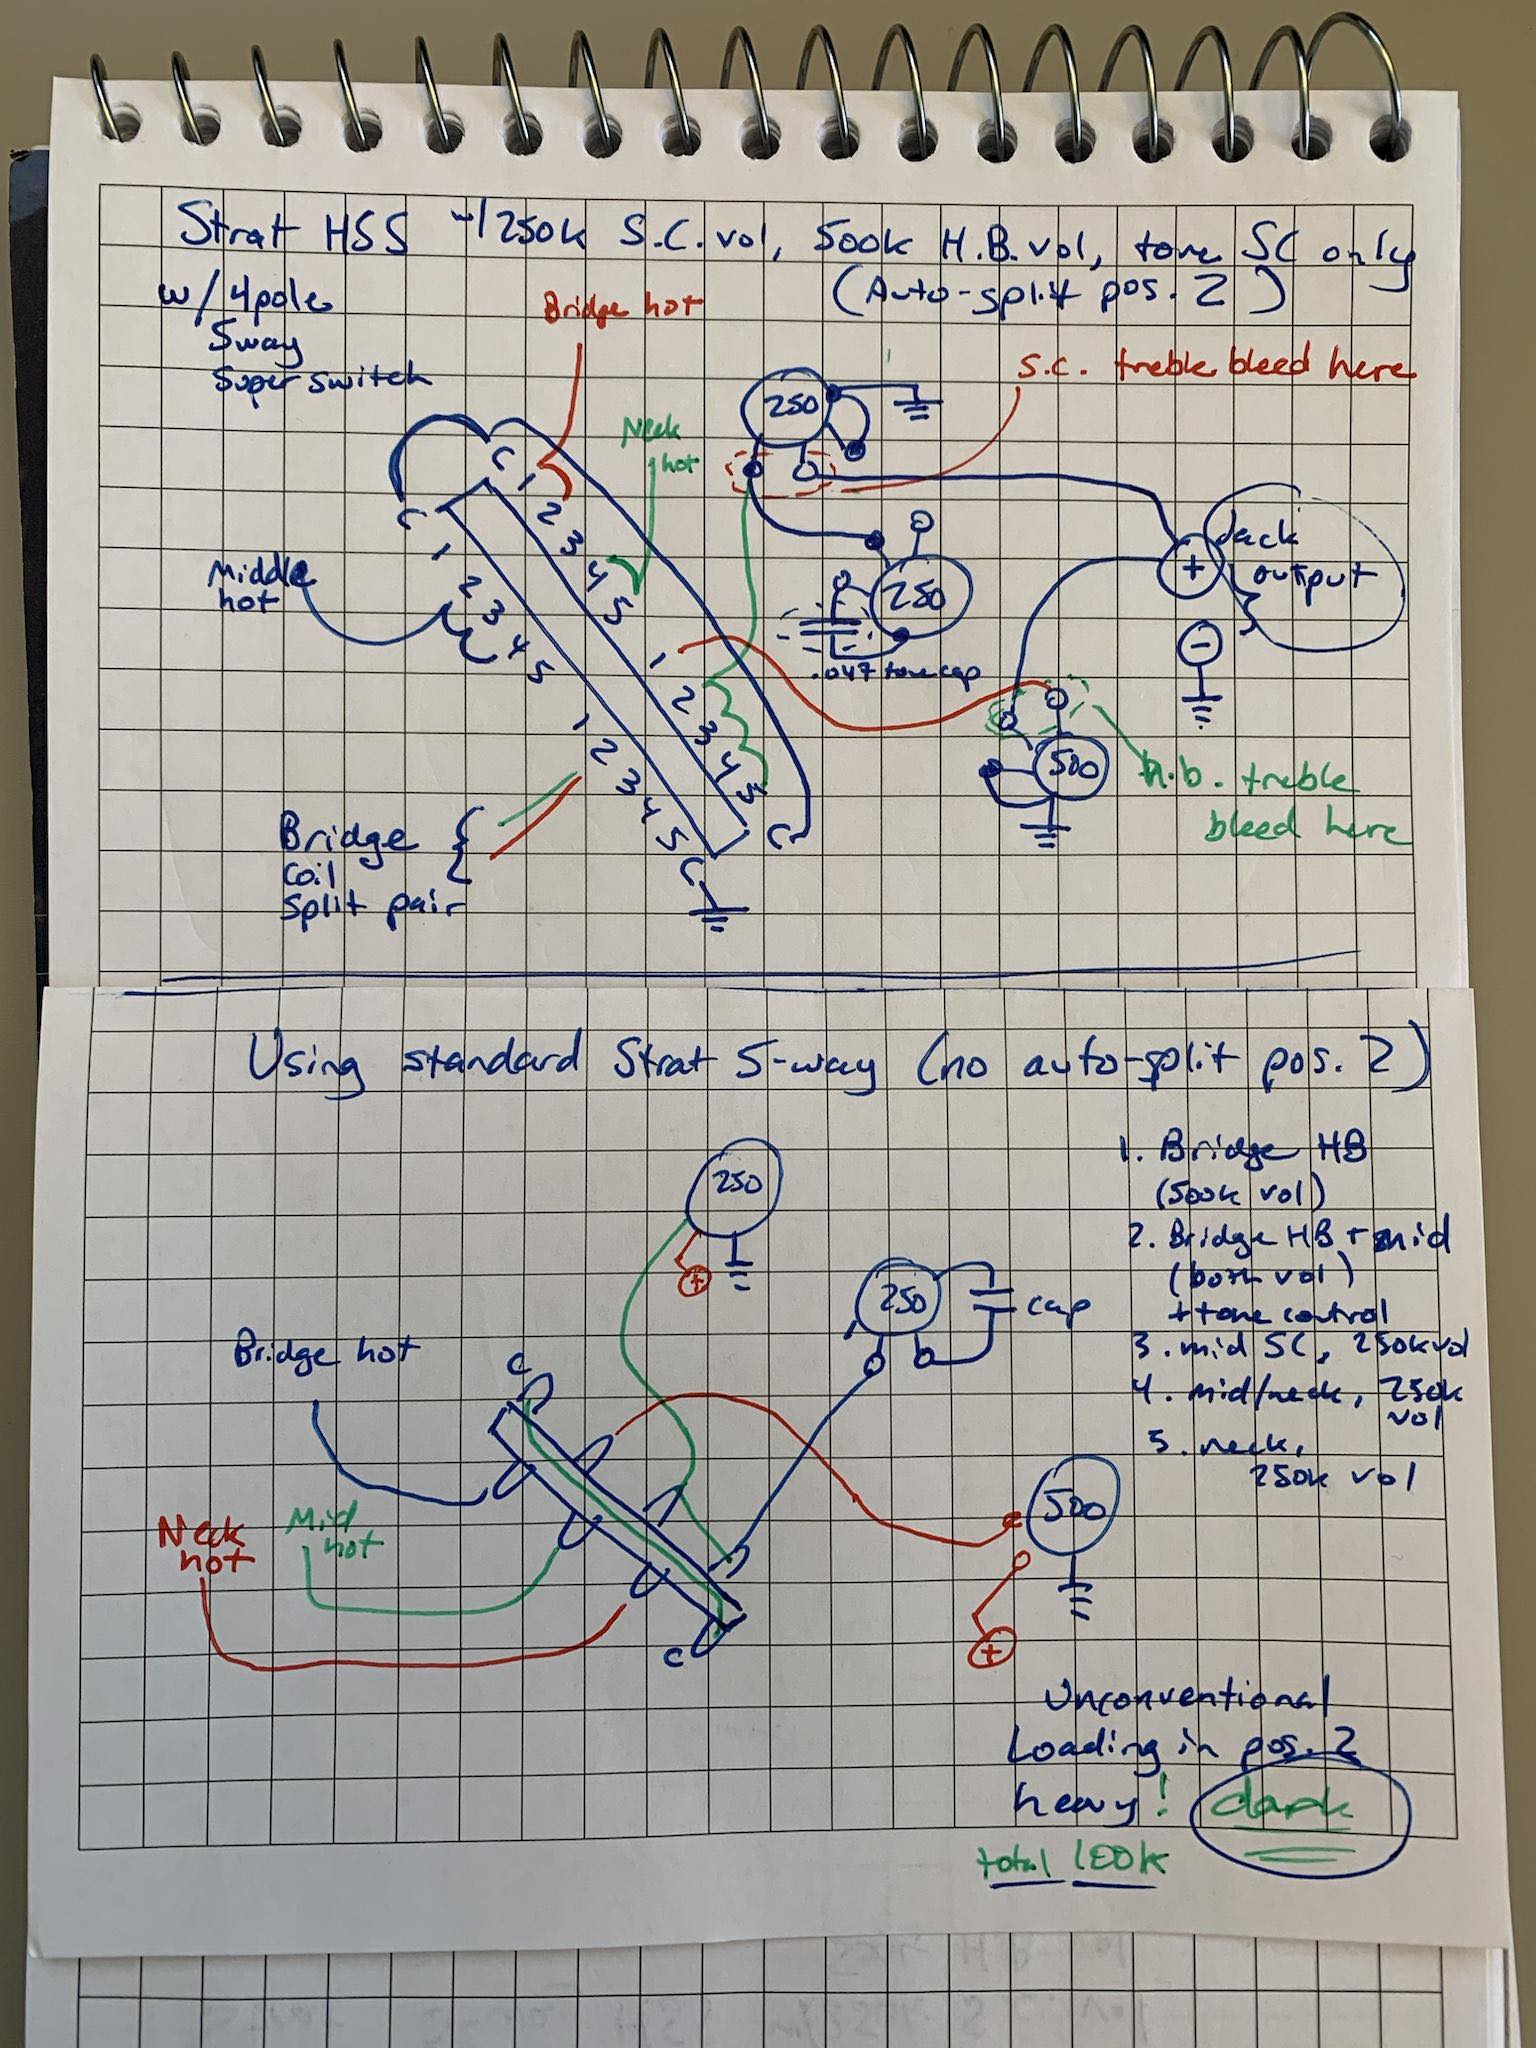 Strat HSS w/250k S.C. vol, 500k H.B. vol, tone SC only
(Auto-split pos. 2)
w/ 4pole
5way
Super switch
Bridge hot
Neck
hot
S.C. treble bleed here
250
C
1
2
3
4
5
C
1
2
3
4
5
Middle
hot
250
.047 tone cap
Jack
output
+
-
1
2
3
4
5
C
1
2
3
4
5
C
500
h.b. treble
bleed here
Bridge
coil
split pair
Using standard Strat 5-way (no auto-split pos. 2)
250
+
250
cap
1. Bridge HB
(500k vol)
2. Bridge HB + mid
(both vol)
+ tone control
3. mid SC, 250k vol
4. mid/neck, 250k
vol
5. neck,
250k vol
Bridge hot
C
Neck
hot
Mid
hot
500
C
+
Unconventional
Loading in pos. 2
heavy! dark
total 100k